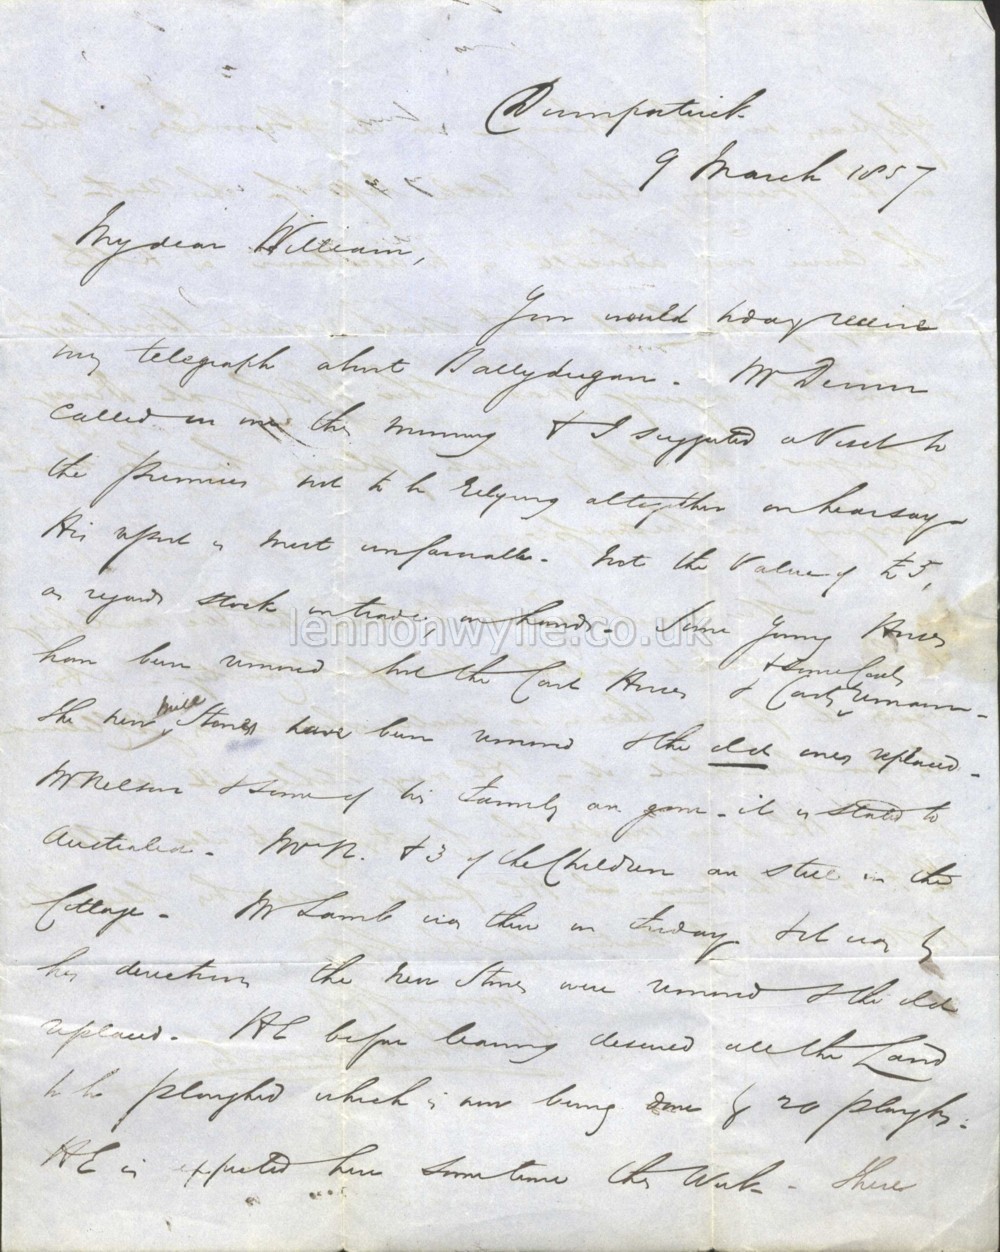 Downpatrick
9 March 1857
My dear William,
You would today receive
my telegraph about Ballydugan. Mr
called on me this morning & I suggested a visit to
the premises not to be relying altogether on hearsay.
His report is most unfavorable. Not the value of £5,
as regards stock in trade, on hands. Some young Horses
have been removed but the Cart Horses & Carts remain.
& some Cows
The new mill Stones have been removed & the old ones replaced.
Mr Nelson & some of his family are gone. it is stated to
Australia. Mrs N. & 3 of the Children are still in the
Cottage. Mr Lamb was there on Friday & it was by
his directions the new Stones were removed & the old
replaced. HE before leaving desired all the Land
to be ploughed which is now being done by 20 ploughs.
HE is expected here sometime this Week. There
lennonwylie.co.uk